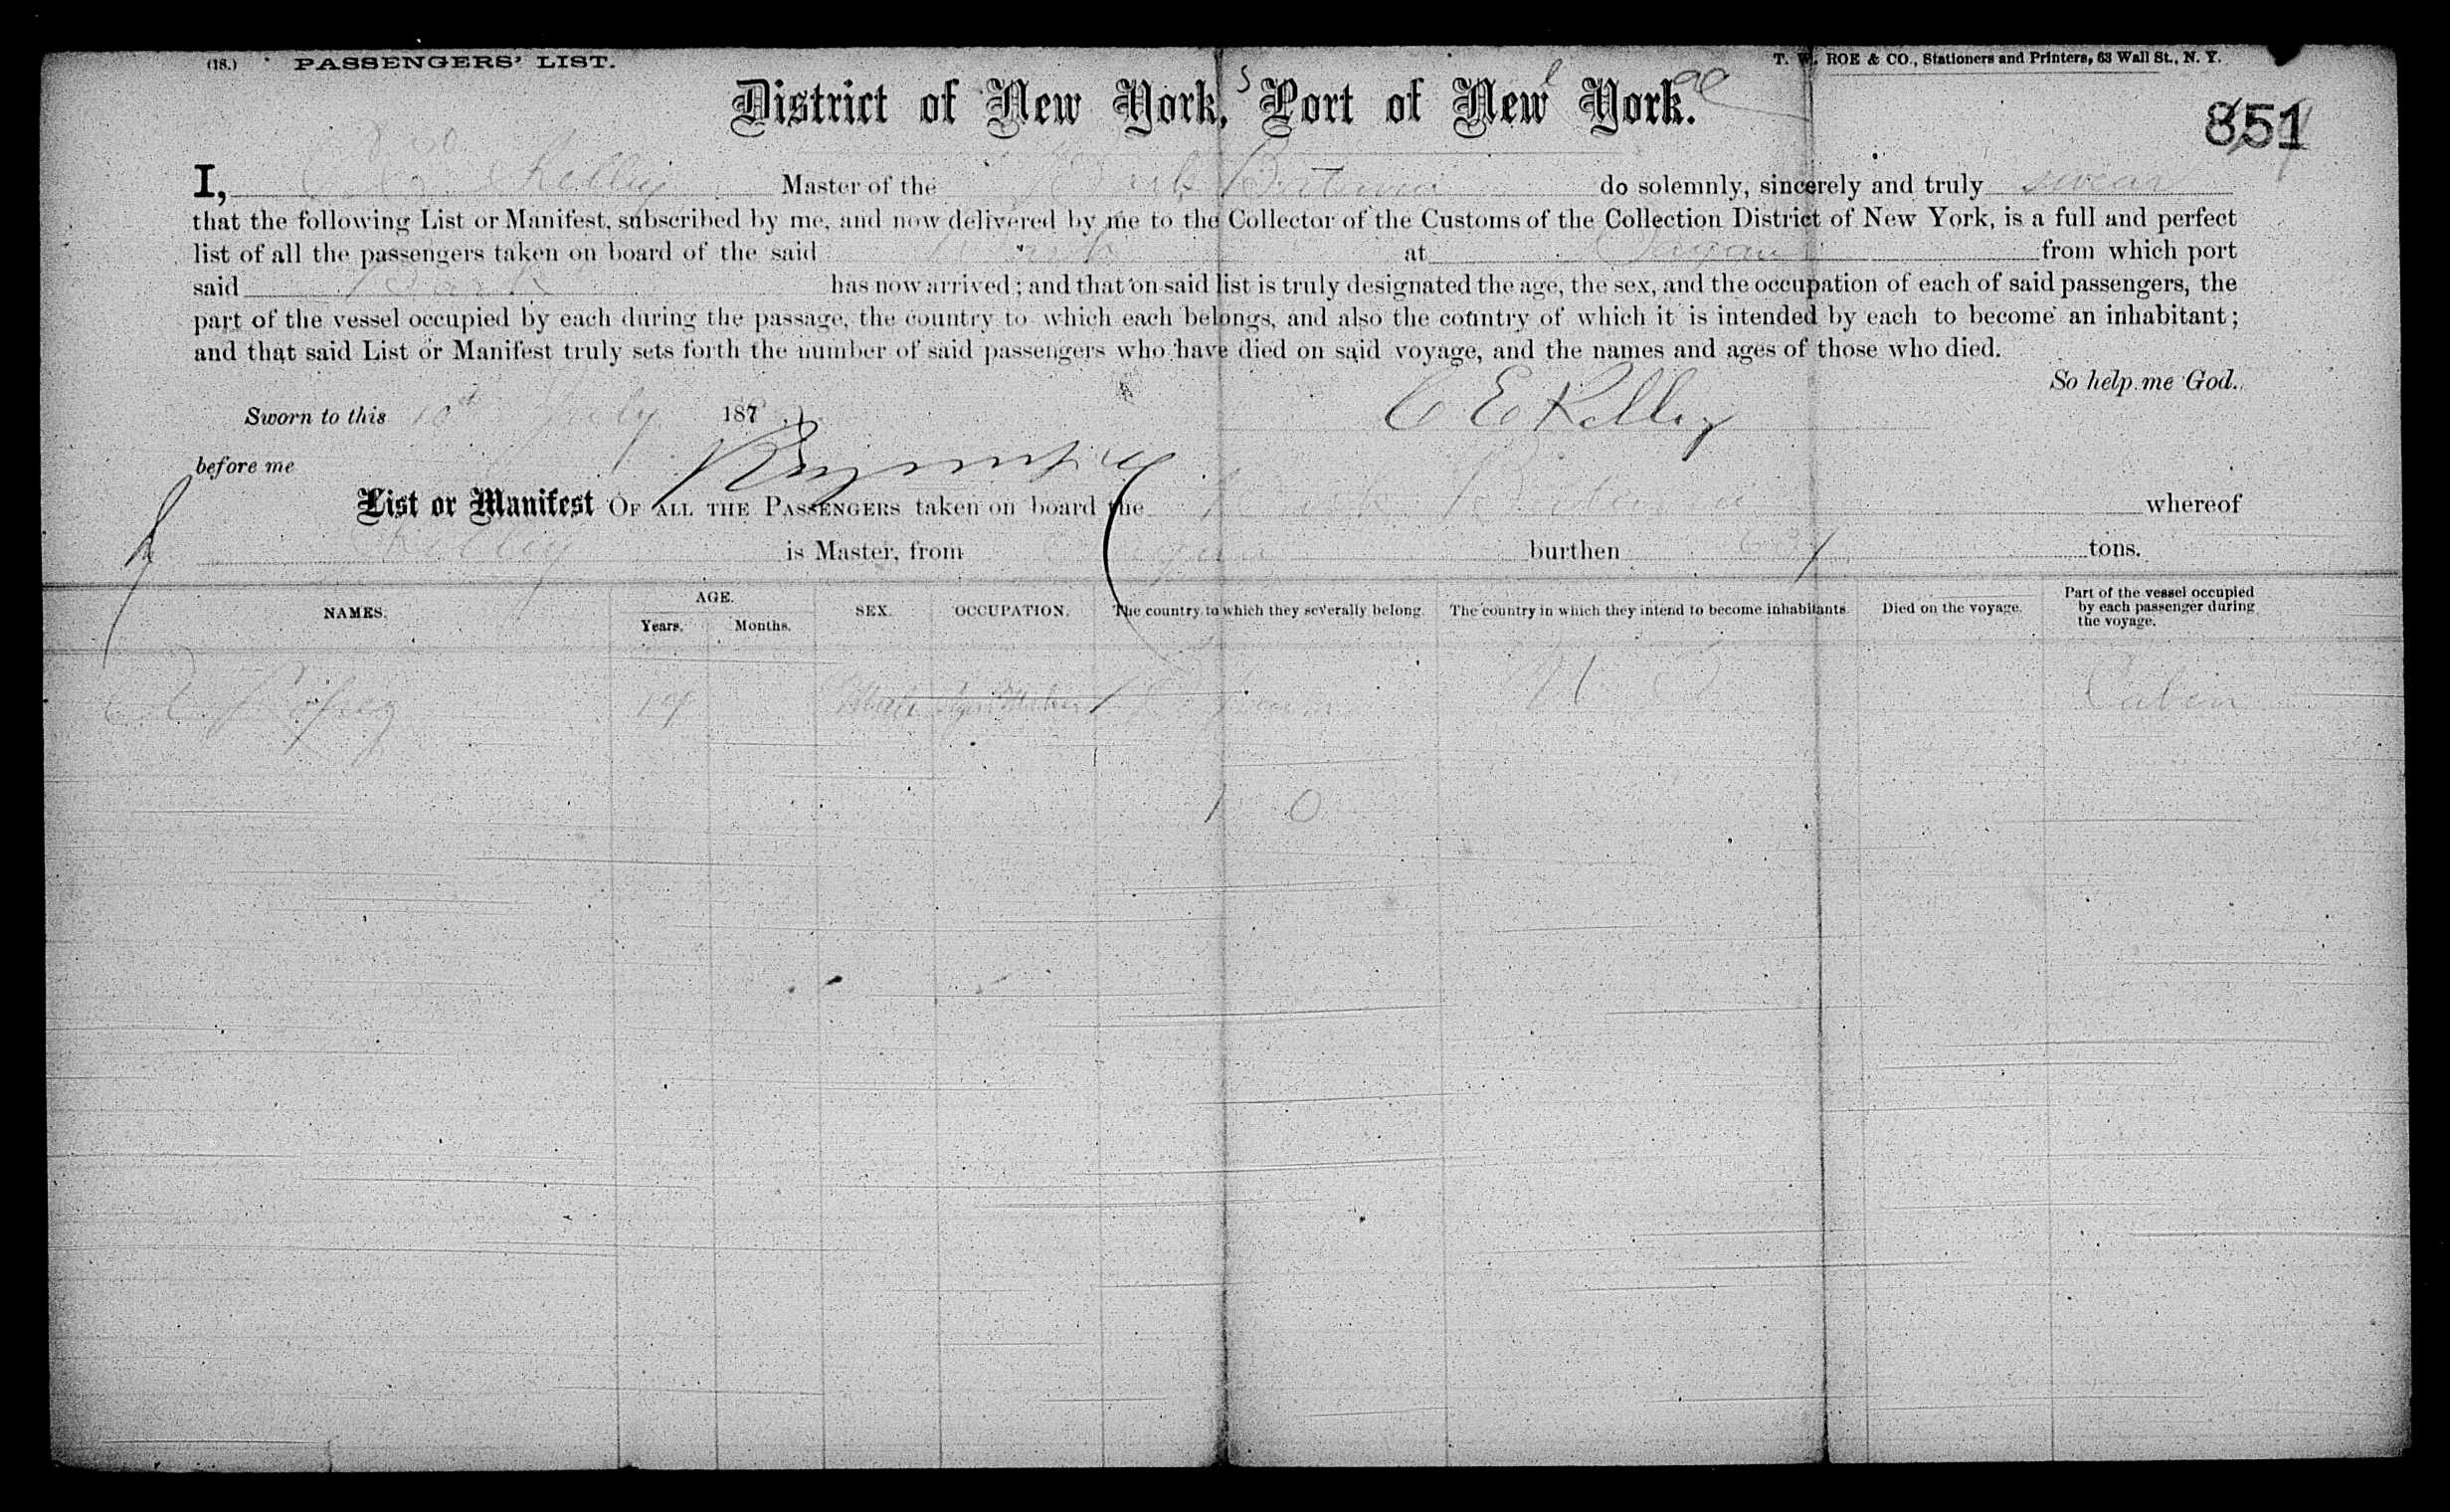 (18.) PASSENGERS' LIST. T. W. ROE & CO., Stationers and Printers, 63 Wall St., N. Y.
District of New York, Port of New York.
851
I, C E Kelley Master of the Bark do solemnly, sincerely and truly swear
that the following List or Manifest, subscribed by me, and now delivered by me to the Collector of the Customs of the Collection District of New York, is a full and perfect
list of all the passengers taken on board of the said Bark at from which port
said Bark has now arrived; and that on said list is truly designated the age, the sex, and the occupation of each of said passengers, the
part of the vessel occupied by each during the passage, the country to which each belongs, and also the country of which it is intended by each to become an inhabitant;
and that said List or Manifest truly sets forth the number of said passengers who have died on said voyage, and the names and ages of those who died.
So help me God.
Sworn to this 10th July 187 C E Kelley
before me
List or Manifest OF ALL THE PASSENGERS taken on board the Bark whereof
Kelley is Master, from burthen tons.
NAMES. AGE. Years. Months. SEX. OCCUPATION. The country to which they severally belong. The country in which they intend to become inhabitants. Died on the voyage. Part of the vessel occupied by each passenger during the voyage.
Male Cabin
1 0